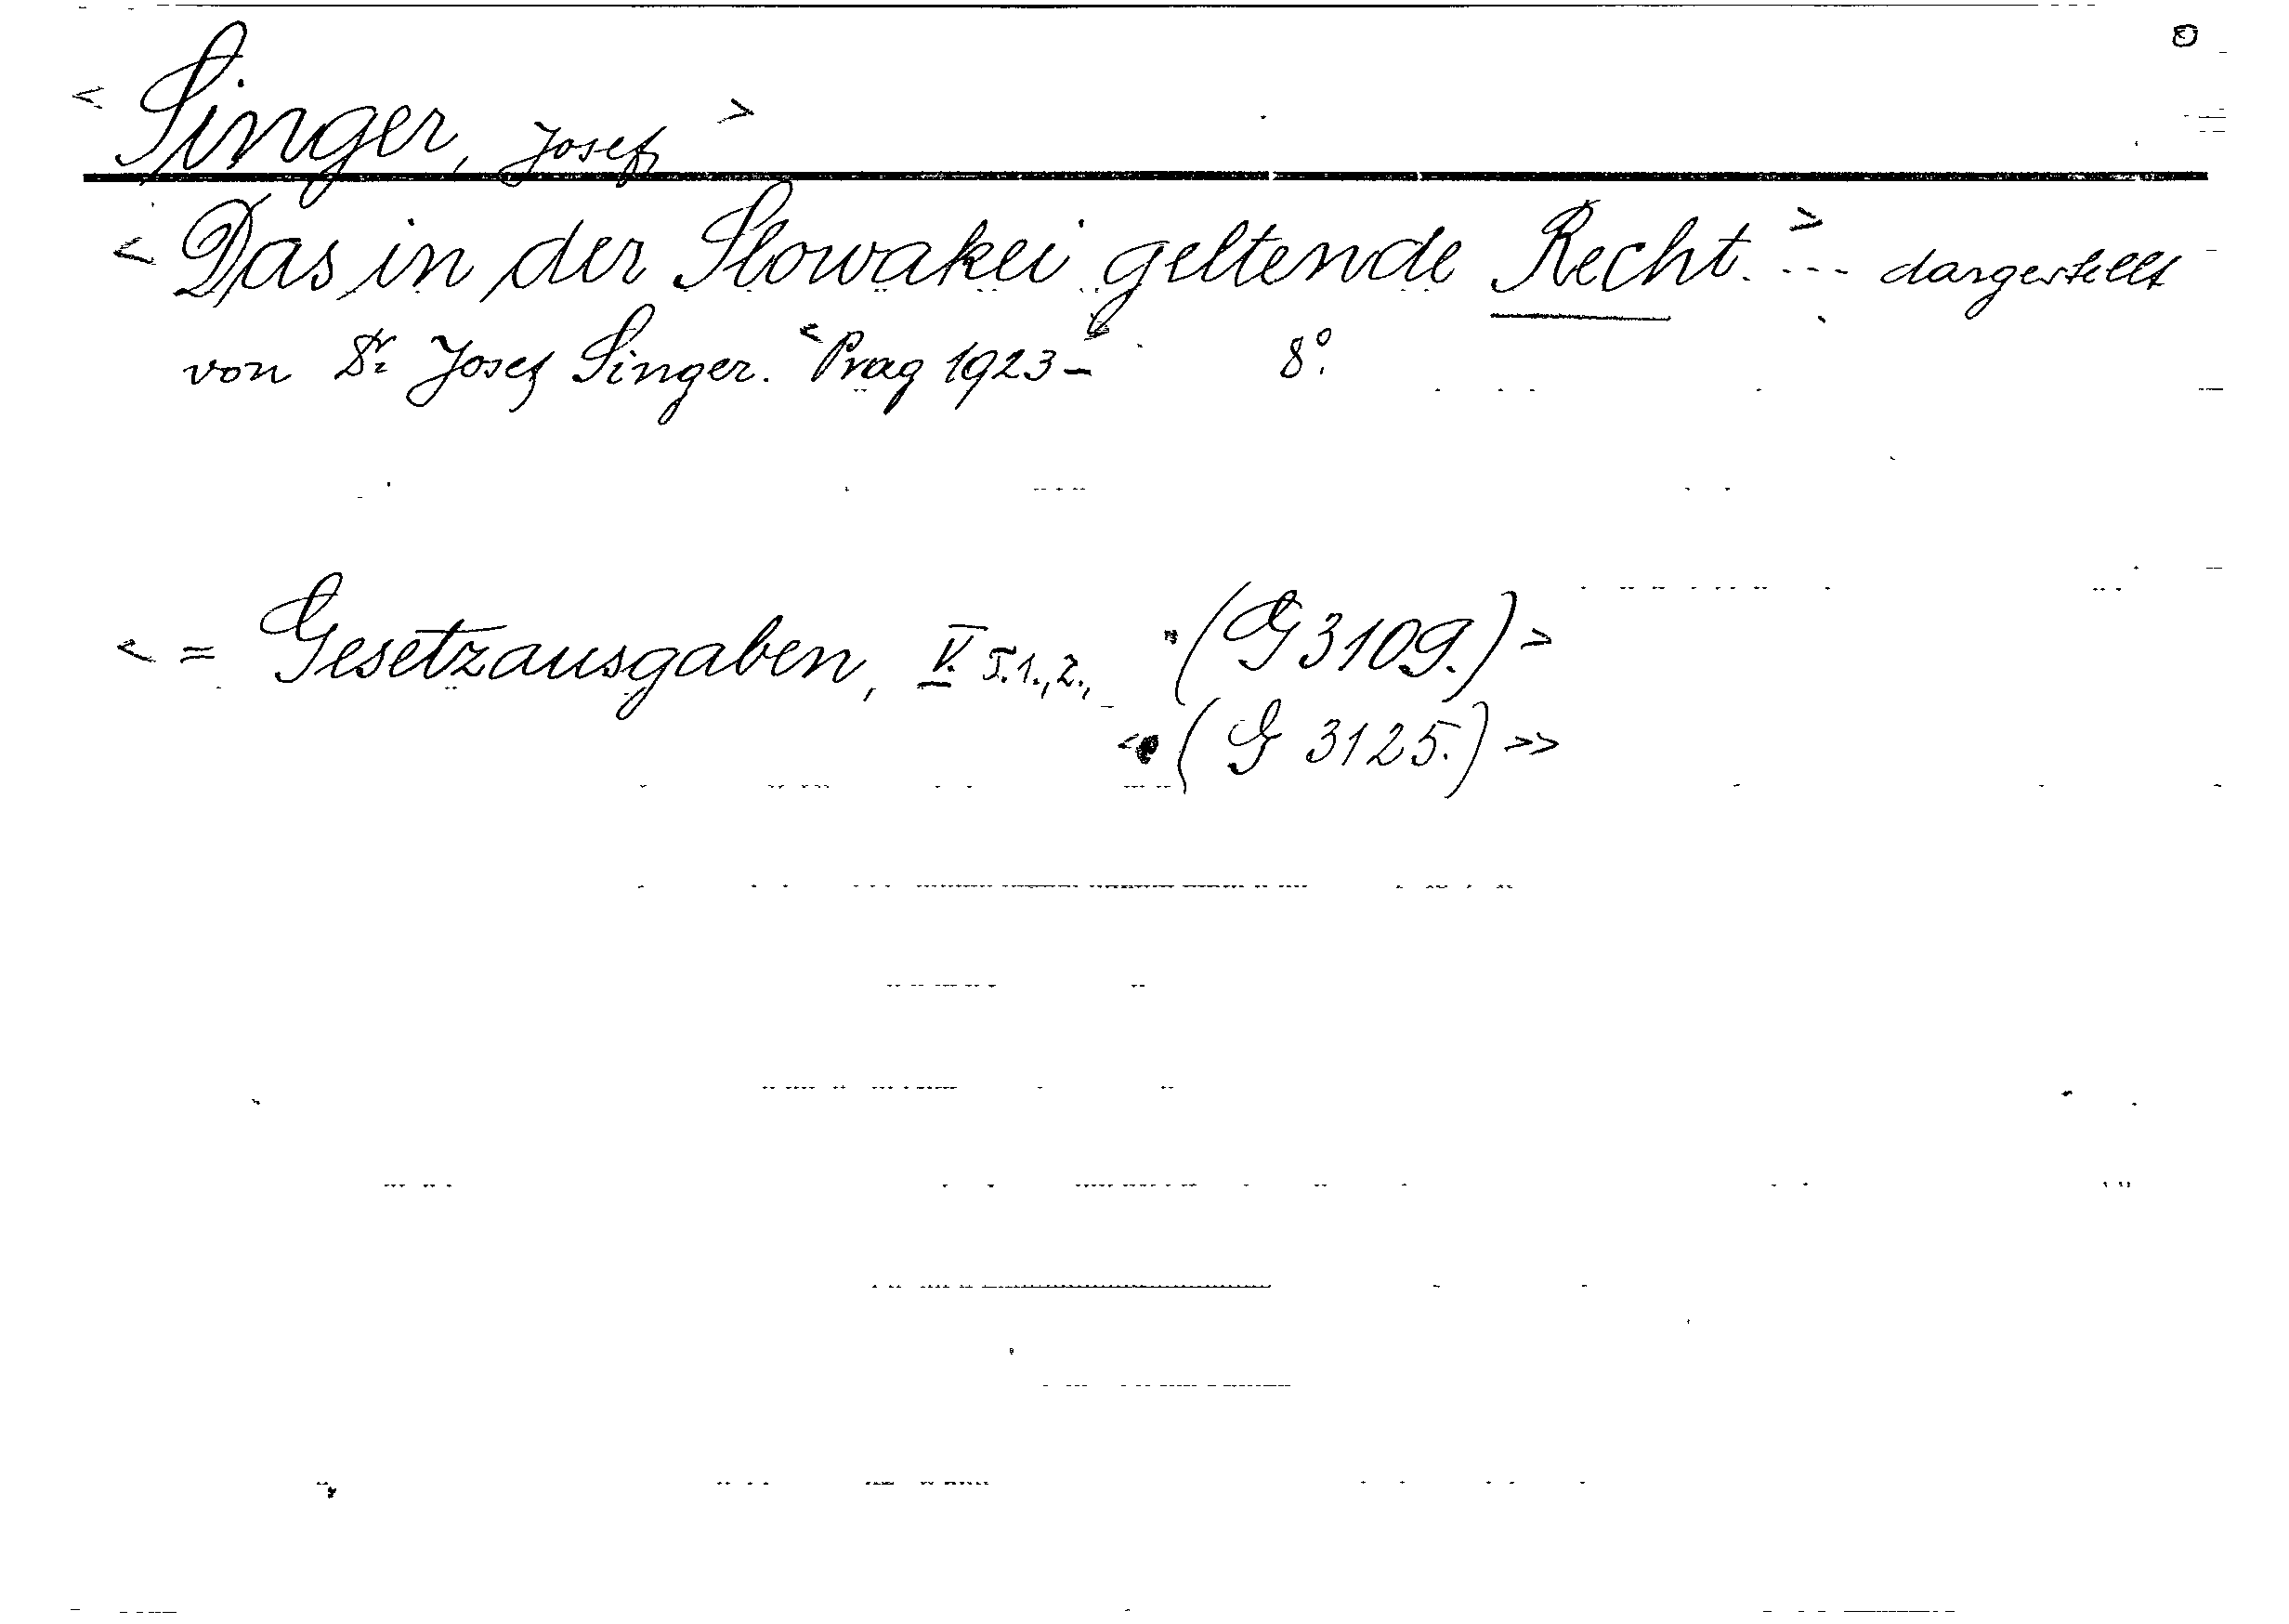 < Singer, Josef >
< Das in der Slowakei geltende Recht. > ... dargestellt
von Dr. Josef Singer. < Prag 1923 - 8°.
< = Gesetzausgaben, V. T. 1., 2., (G 3109.) >
< (G 3125.) >>